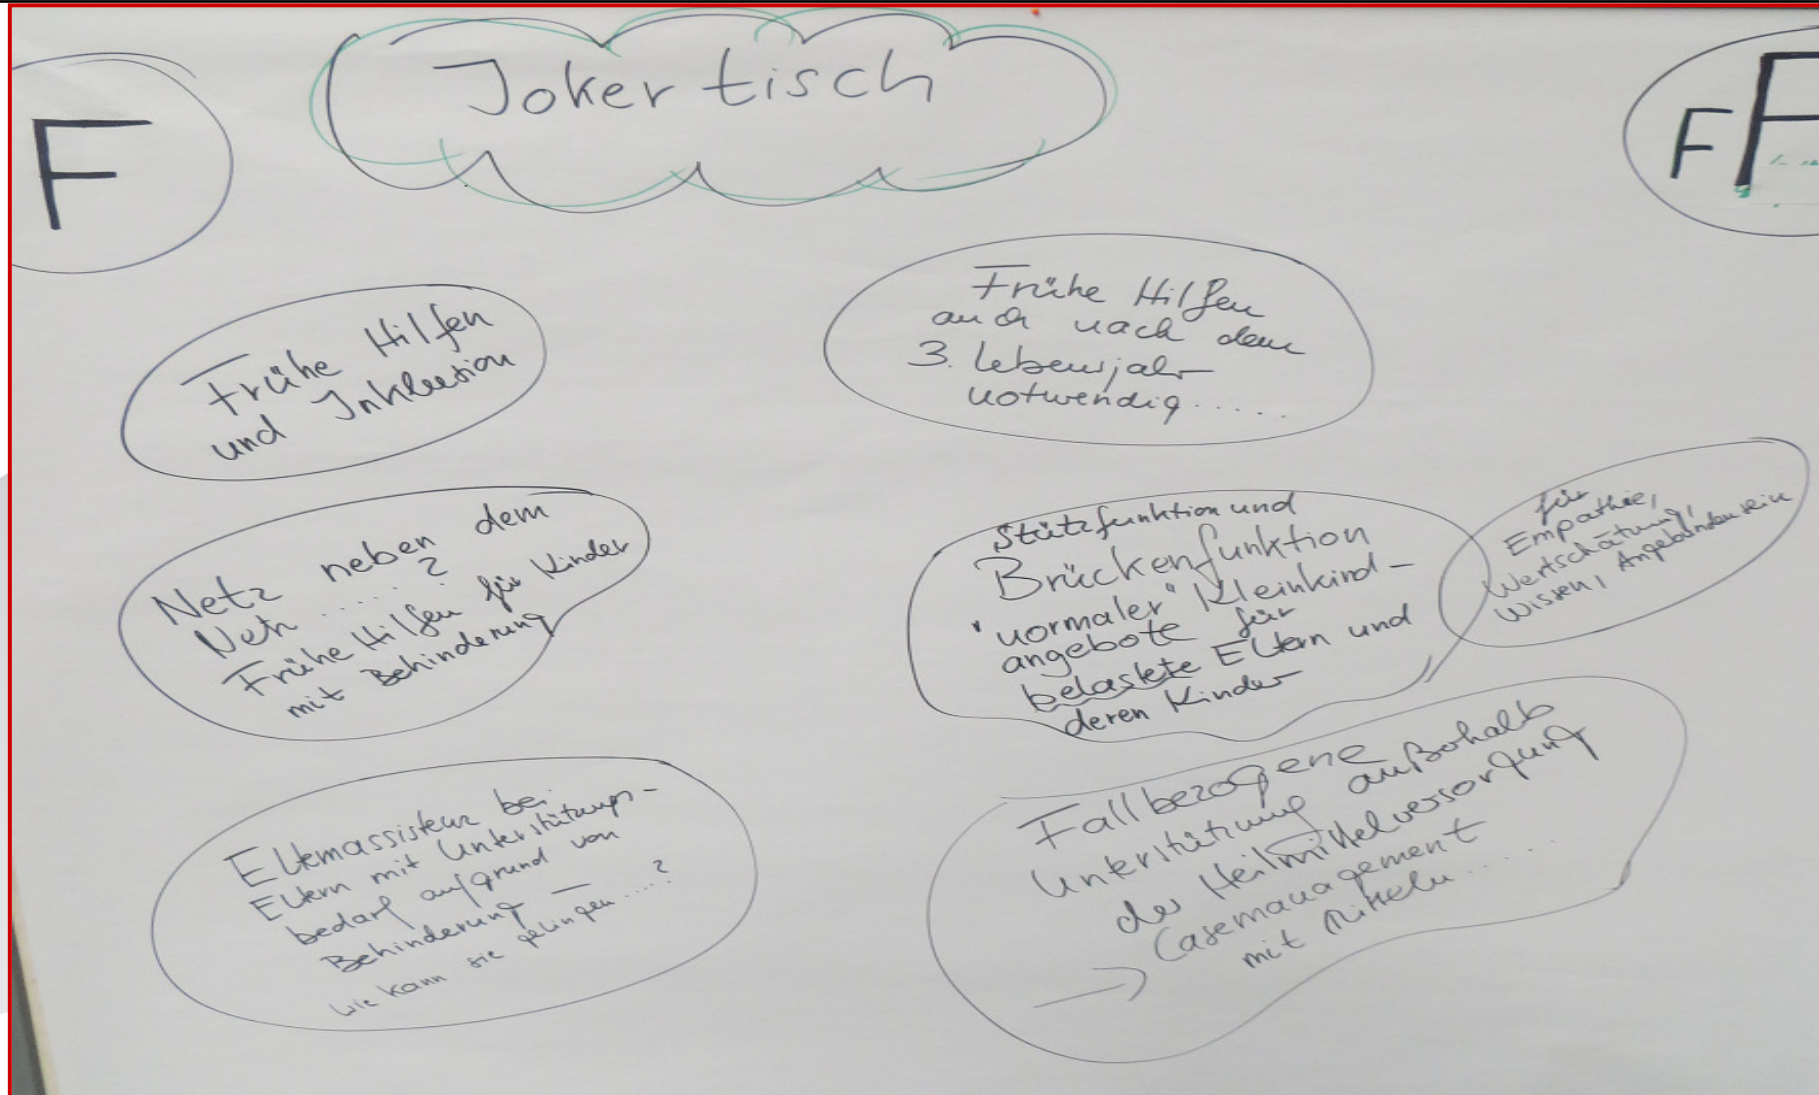 F
Jokertisch
F F
Frühe Hilfen
und Inklusion
Frühe Hilfen
auch nach dem
3. Lebensjahr
notwendig.....
Netz neben dem
Netz.....?
Frühe Hilfen für Kinder
mit Behinderung
Stützfunktion und
Brückenfunktion
"normaler" Kleinkind-
angebote für
belastete Eltern und
deren Kinder
für
Empathie,
Wertschätzung,
Wissen, Angebundensein
Elternassistenz bei
Eltern mit Unterstützungs-
bedarf aufgrund von
Behinderung —
wie kann sie gelingen....?
Fallbezogene
Unterstützung außerhalb
der Heilmittelversorgung
Casemanagement
→ mit Mitteln.....